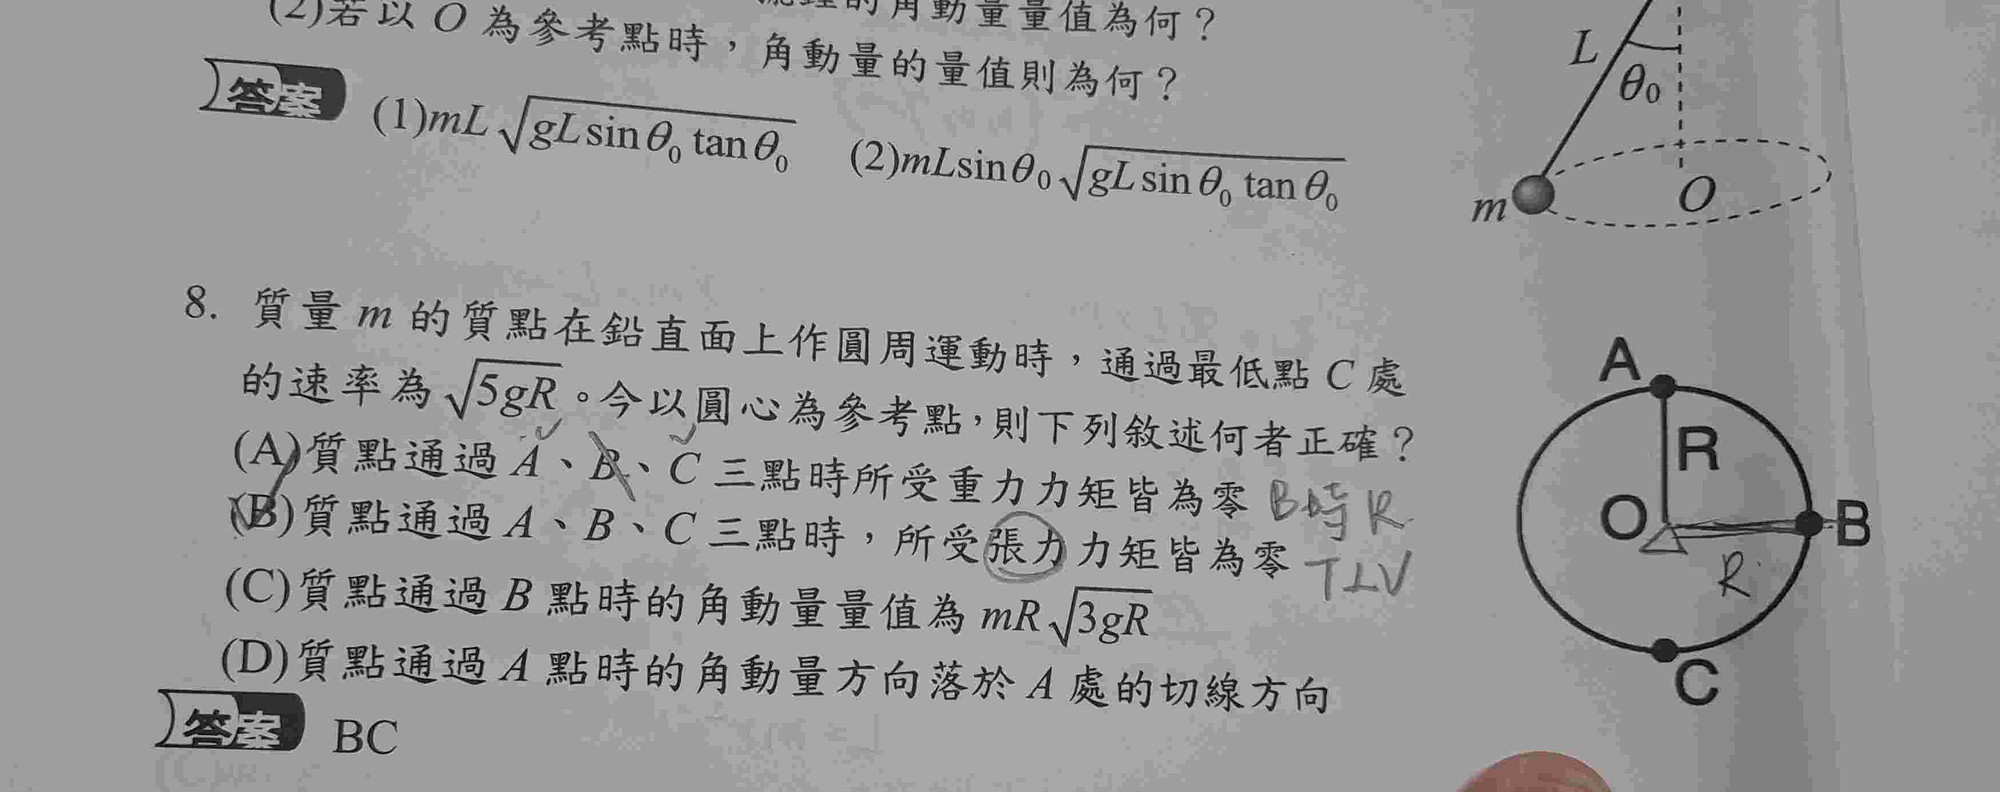 的角動量量值為何？
(2)若以 O 為參考點時，角動量的量值則為何？
答案 (1)mL√(gL sinθ₀ tanθ₀) (2)mLsinθ₀√(gL sinθ₀ tanθ₀)
L
θ₀
m
O
8. 質量 m 的質點在鉛直面上作圓周運動時，通過最低點 C 處
的速率為 √(5gR)。今以圓心為參考點，則下列敘述何者正確？
(A)質點通過 A、B、C 三點時所受重力力矩皆為零 B時 R
(B)質點通過 A、B、C 三點時，所受張力力矩皆為零 T⊥V
(C)質點通過 B 點時的角動量量值為 mR√(3gR)
(D)質點通過 A 點時的角動量方向落於 A 處的切線方向
答案 BC
A
R
O
B
R
C